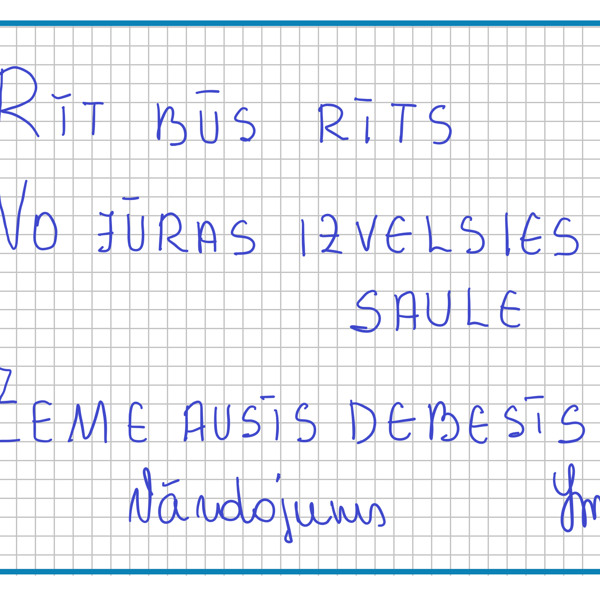 RĪT BŪS RĪTS
NO JŪRAS IZVELSIES
SAULE
ZEME AUSĪS DEBESĪS